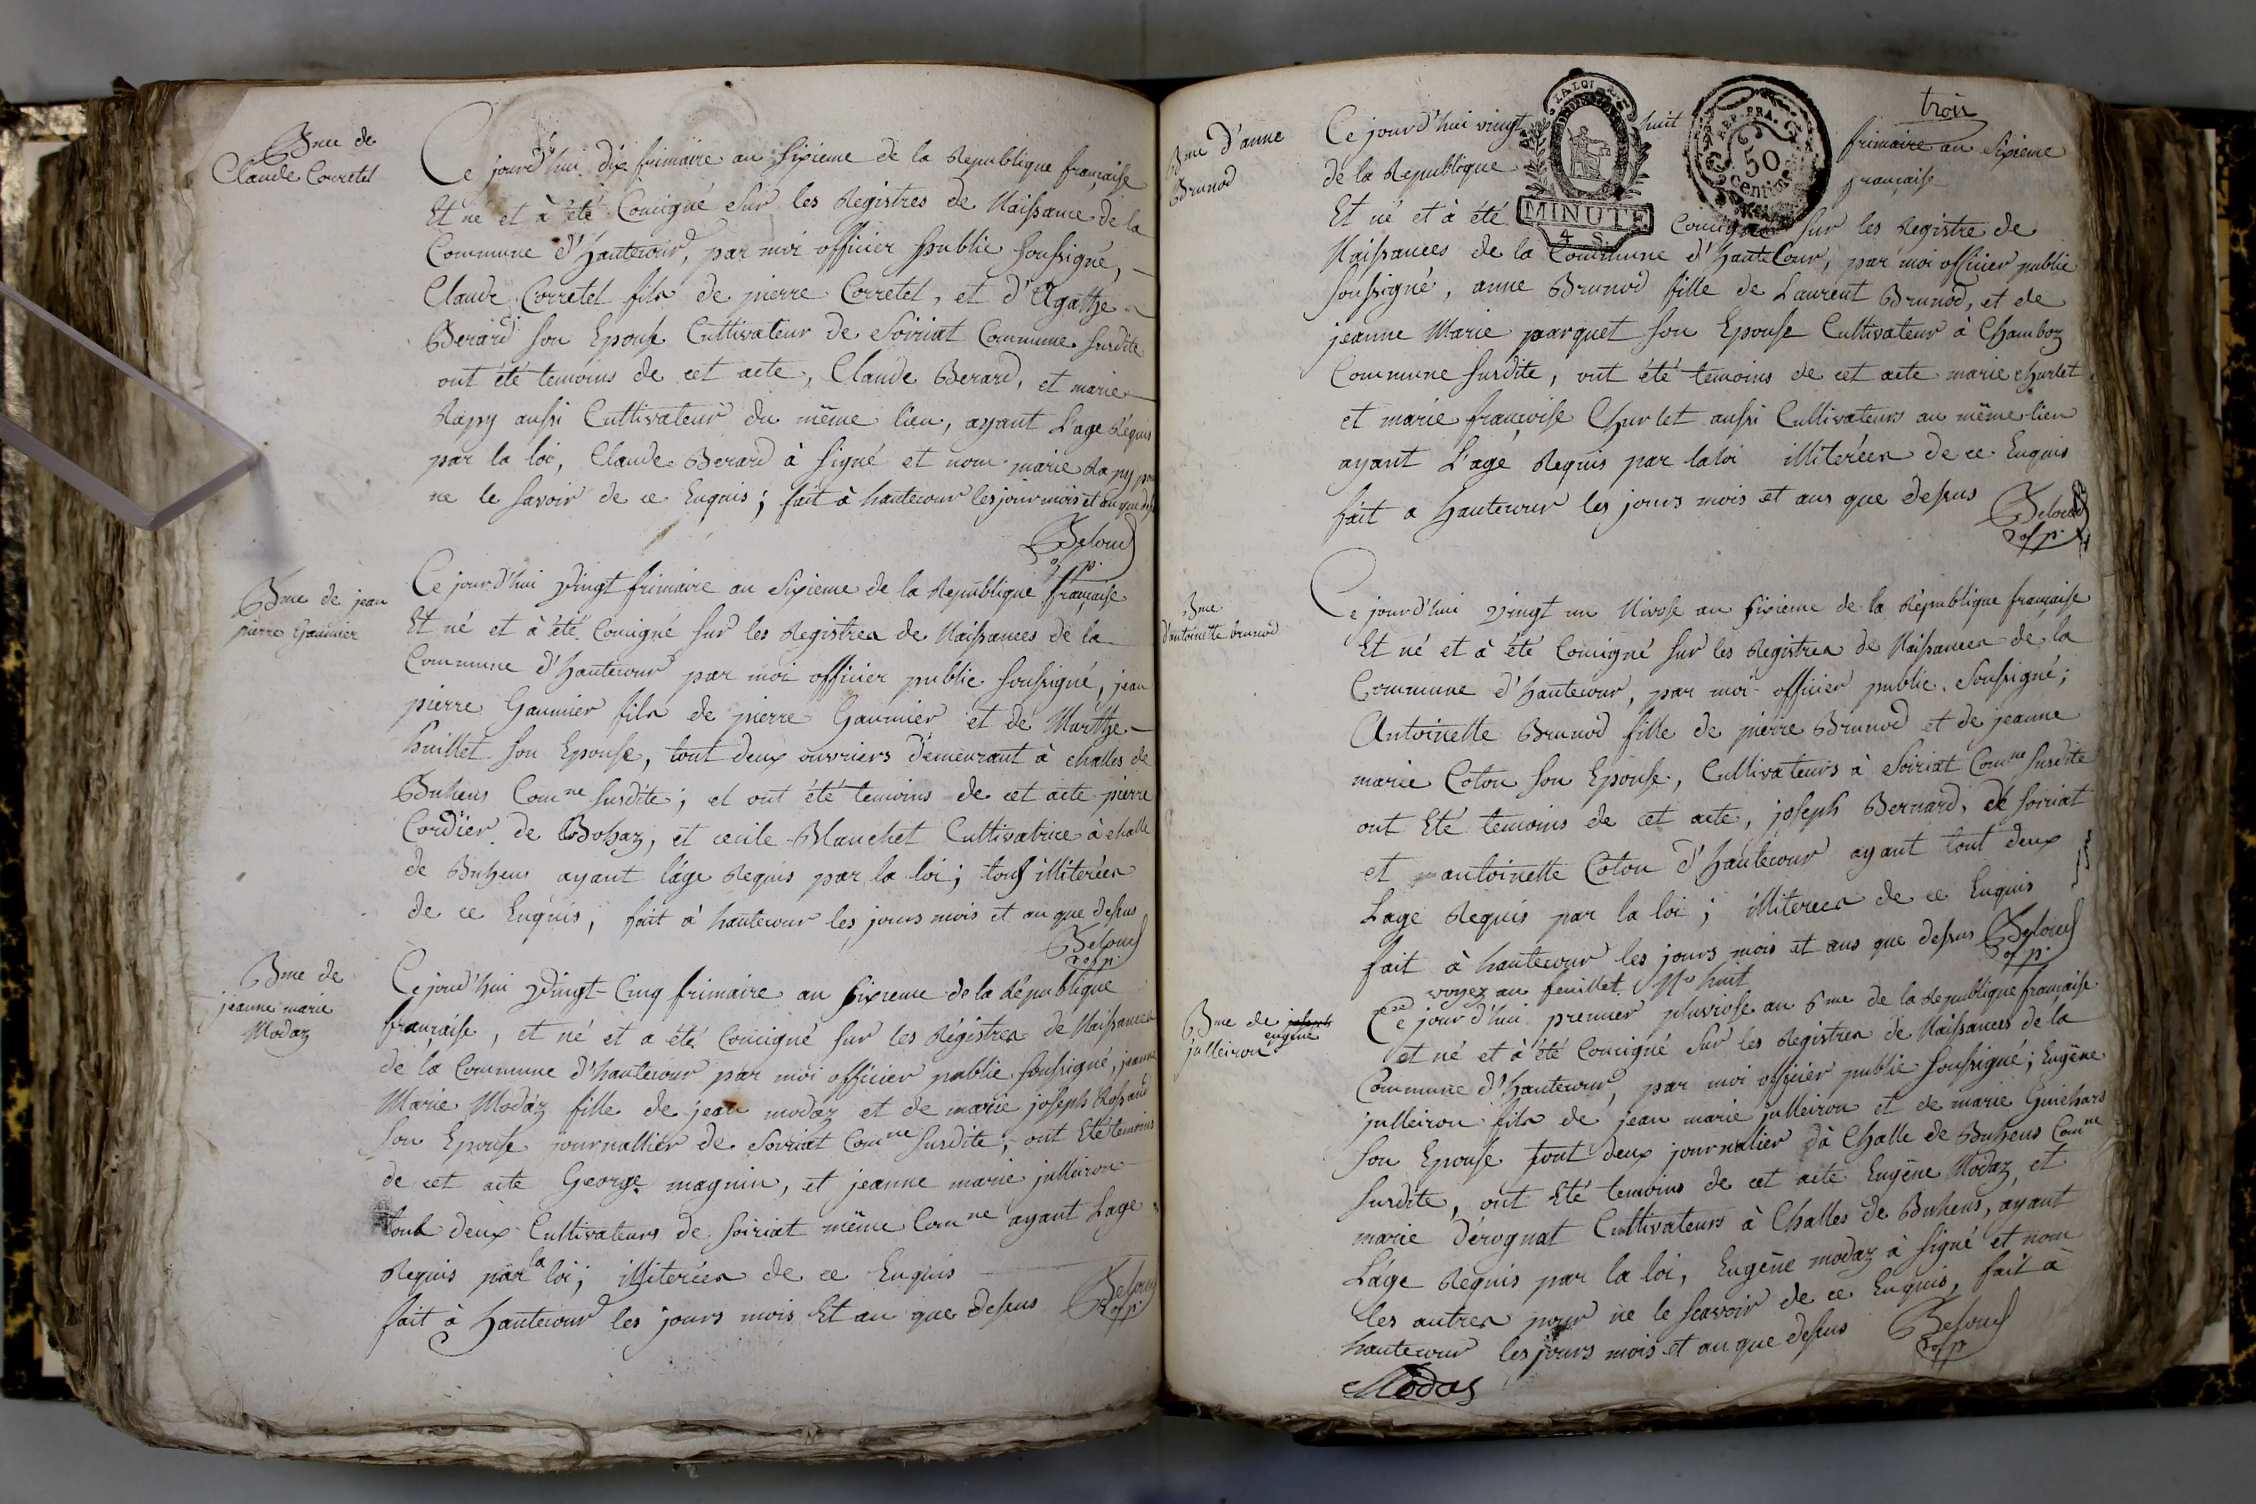 Bme de
Claude Corretel
Ce jourd'hui dix frimaire an Sixieme de la Republique française
Et né et à été Concigné Sur les Registres de Naissance de la
Commune d'hautecour, par moi officier public Soussigné,
Claude Corretel fils de pierre Corretel, et d'Agathe
Berard son Epouse Cultivateur de Soiriat Commune Susdite
ont été temoins de cet acte, Claude Berard, et marie
Rapy aussi Cultivateur du même lieu, ayant L'age Réquis
par la loi, Claude Berard à signé et nom marie Rapy pour
ne le savoir de ce Enquis; fait à hautecour les jour mois et an que
of p.
Bme de jean
pierre Gaunier
Ce jourd'hui vingt frimaire an Sixieme de la Republique française
Et né et à été Concigné sur les Registres de Naissances de la
Commune d'hautecour par moi officier public Soussigné, jean
pierre Gaunier fils de pierre Gaunier et de Marthe
huillet son Epouse, tout deux ouvriers demeurant à challes de
Buhens Comne susdite; et ont été temoins de cet acte pierre
Cordier de Bohaz, et cecile Blanchet Cultivatrice à challe
de Buhens ayant l'âge Requis par la loi; tous illiterées
de ce Enquis, fait à hautecour les jours mois et an que dessus
of p.
Bme de
jeanne marie
Modaz
Ce jourd'hui vingt Cinq frimaire an Sixieme de la République
française, et né et a été Concigné sur les Régistres de Naissances
de la Commune d'hautecour par moi officier public Soussigné, jeanne
Marie Modaz fille de jean modaz et de marie joseph Rossand
son Epouse journallier de Soiriat Comne susdite; ont Eté temoins
de cet acte George magnin, et jeanne marie julleiron
tout deux Cultivateurs de Soiriat même Comne ayant Lage
Requis par la loi; illiterées de ce Enquis
fait à hautecour les jours mois Et an que dessus
of p.
trois
LA LOI
MINUTE
4 S.
REP. FRA.
50
Centimes
Bme d'anne
Brunod
Ce jourd'hui vingt huit frimaire an Sixieme
de la Republique française
Et né et à été Concigné sur les Registre de
Naissances de la Commune d'hauteCour, par moi officier public
soussigné, anne Brunod fille de Laurent Brunod, et de
jeanne Marie parquet son Epouse Cultivateur à Chamboz
Commune susdite, ont été temoins de cet acte marie churlet
et marie françoise Churlet aussi Cultivateurs au même lieu
ayant L'age Requis par la loi illiterées de ce Enquis
fait a hautecour les jours mois et ans que dessus
of p.
Bme
d'antoinette brunod
Ce jourd'hui vingt un Nivose an Sixieme de la République française
Et né et à été Concigné sur les Registres de Naissances de la
Commune d'hautecour, par moi officier public Soussigné;
Antoinette Brunod fille de pierre Brunod et de jeanne
marie Coton son Epouse, Cultivateurs à Soiriat Comne susdite
ont Eté temoins de cet acte, joseph Bernard, de soiriat
et antoinette Coton d'hautecour ayant tout deux
Lage Requis par la loi; illiterées de ce Enquis
fait à hautecour les jours mois et ans que dessus
of p.
voyez au feuillet No huit
Bme de joseph
eugène
julleiron
Ce jourd'hui premier pluviose an 6me de la Republique française
et né et à été Concigné sur les Registres de Naissances de la
Commune d'hautecour, par moi officier public soussigné; Eugène
julleiron fils de jean marie julleiron et de marie Guichard
son Epouse tout deux journalier à Challe de Buhens Comne
susdite, ont Eté temoins de cet acte Eugène Modaz, et
marie dérognat Cultivateurs à Challes de Buhens, ayant
L'âge Requis par la loi, Eugène modaz à signé et nom
les autres pour ne le scavoir de ce Enquis, fait à
hautecour les jours mois et an que dessus
of p.
Modas